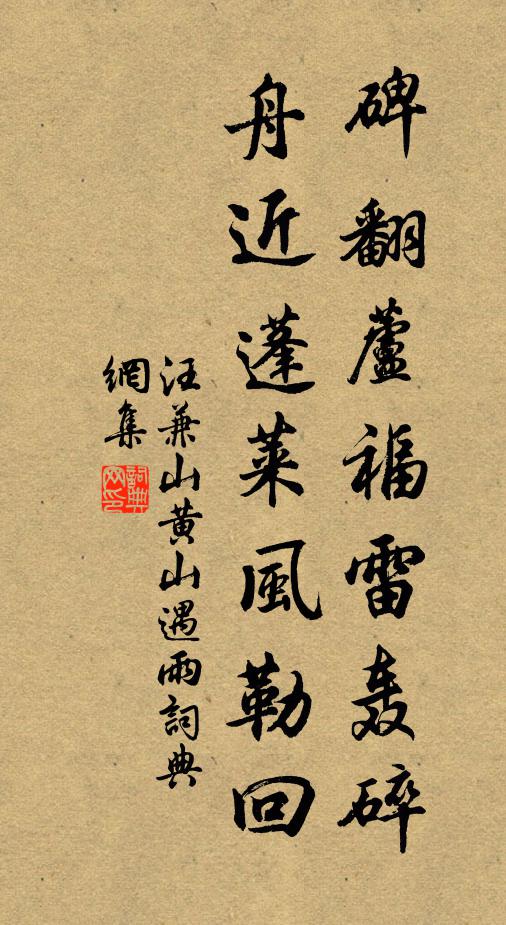 碑翻蘆福雷轰碎
舟近蓬萊風勒回
汪兼山黄山遇雨詞典
網集
詞典
网印